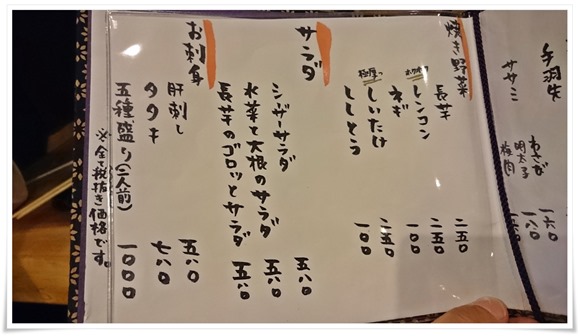 手羽先
ササミ
わさび 一六〇
明太子 一八〇
梅肉
焼き野菜
長芋 二五〇
ホクホク
レンコン 二五〇
ネギ 一〇〇
極厚っ
しいたけ 二五〇
ししとう 一〇〇
サラダ
シーザーサラダ 五八〇
水菜と大根のサラダ 五八〇
長芋のゴロッとサラダ 五八〇
お刺身
肝刺し 五八〇
タタキ 七八〇
五種盛り(二人前) 一〇〇〇
※全て税抜き価格です。